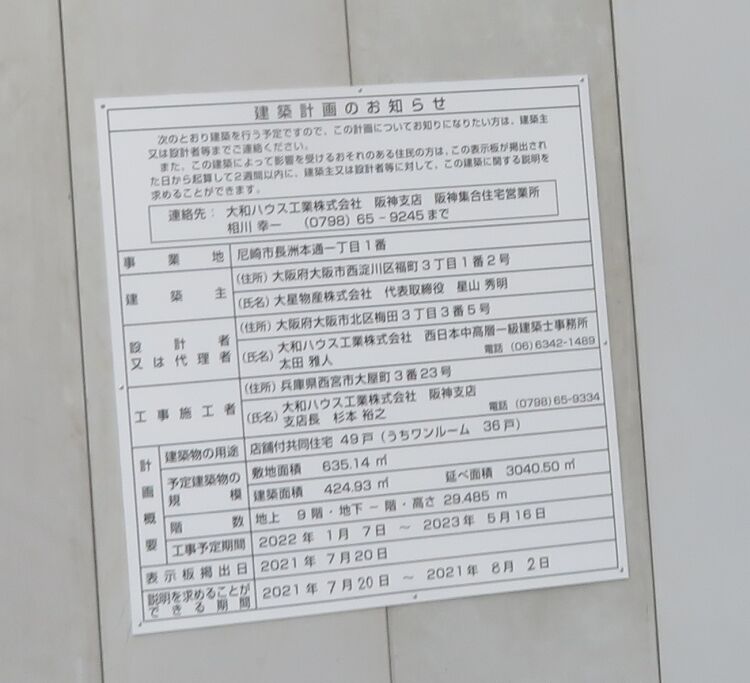 建築計画のお知らせ
次のとおり建築を行う予定ですので、この計画についてお知りになりたい方は、建築主
又は設計者等までご連絡ください。
また、この建築によって影響を受けるおそれのある住民の方は、この表示板が掲出され
た日から起算して2週間以内に、建築主又は設計者等に対して、この建築に関する説明を
求めることができます。
連絡先： 大和ハウス工業株式会社 阪神支店 阪神集合住宅営業所
相川 幸一 (0798) 65－9245まで
事業地 尼崎市長洲本通一丁目1番
建築主 (住所) 大阪府大阪市西淀川区福町3丁目1番2号
(氏名) 大星物産株式会社 代表取締役 星山 秀明
設計者 (住所) 大阪府大阪市北区梅田3丁目3番5号
又は代理者 (氏名) 大和ハウス工業株式会社 西日本中高層一級建築士事務所
太田 雅人 電話 (06) 6342-1489
工事施工者 (住所) 兵庫県西宮市大屋町3番23号
(氏名) 大和ハウス工業株式会社 阪神支店
支店長 杉本 裕之 電話 (0798) 65-9334
計画概要 建築物の用途 店舗付共同住宅 49戸（うちワンルーム 36戸）
予定建築物の規模 敷地面積 635.14 ㎡
建築面積 424.93 ㎡ 延べ面積 3040.50 ㎡
階数 地上 9階・地下－階・高さ 29.485 m
工事予定期間 2022年 1月 7日 ～ 2023年 5月16日
表示板掲出日 2021年 7月20日
説明を求めることができる期間 2021年 7月20日 ～ 2021年 8月 2日